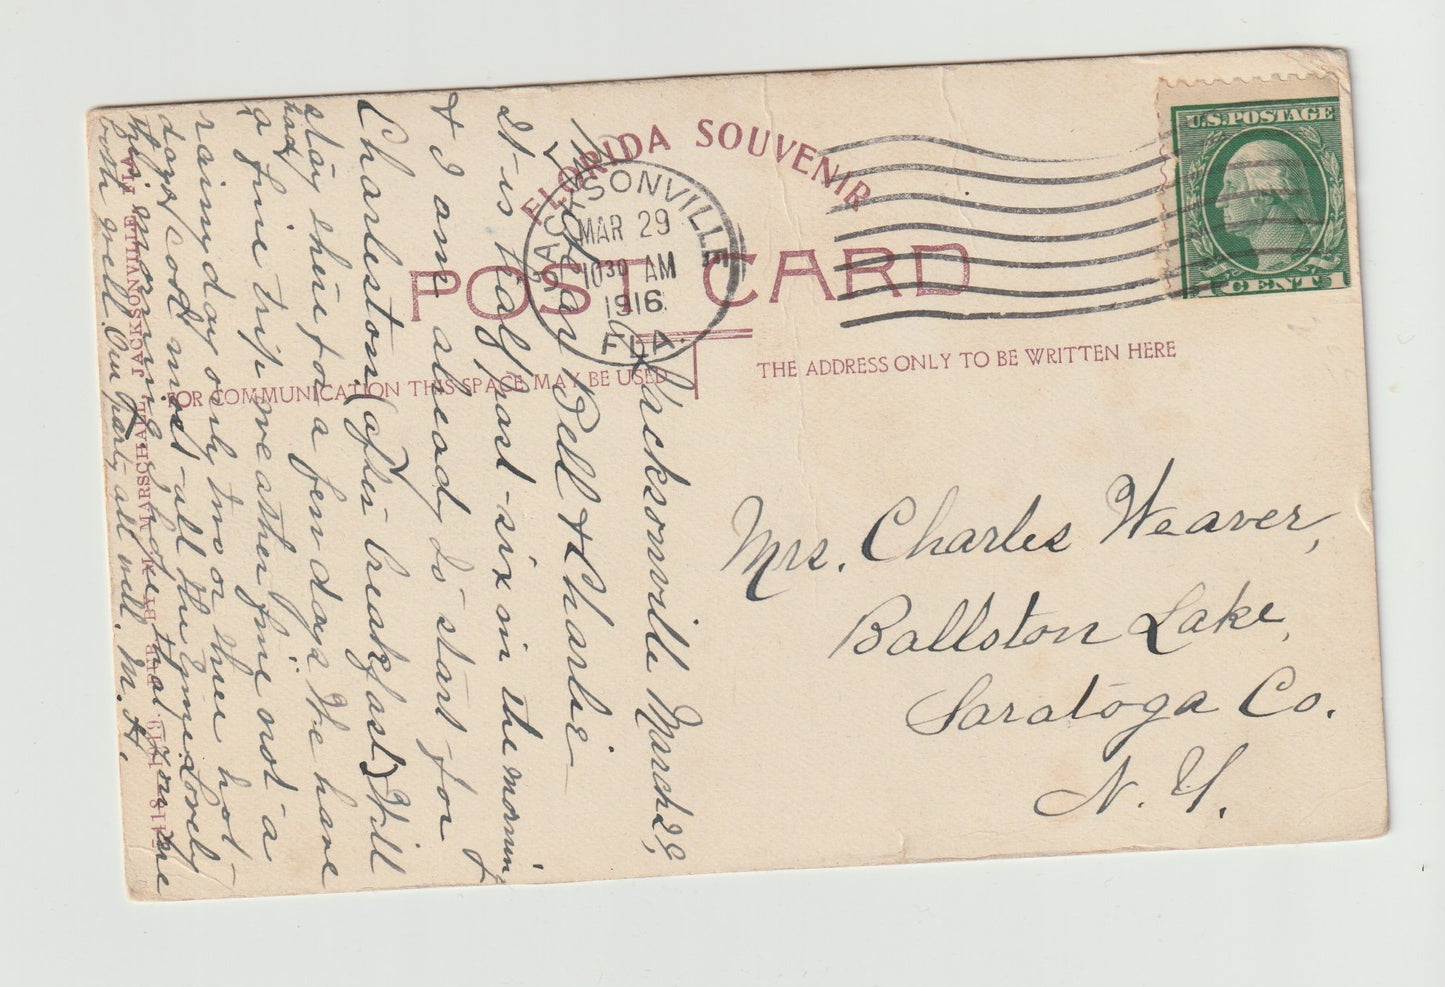 FLORIDA SOUVENIR
POST CARD
FOR COMMUNICATION THIS SPACE MAY BE USED
THE ADDRESS ONLY TO BE WRITTEN HERE
JACKSONVILLE
MAR 29
10 30 AM
1916
FLA.
U.S. POSTAGE
1 CENT 1
Jacksonville March 29,
Dear Bell & Charlie—
It is half past six in the morning
& I am already to start for
Charleston (after breakfast) Will
stay there for a few days. We have
had
a fine trip, weather fine not a
rainy day only two or three hot
days, cool most all the time. Lovely
this morning. hope that you are
both well. Our party all well. M. H.
Mrs. Charles Weaver,
Ballston Lake,
Saratoga Co.
N. Y.
PUB. BY H. MARSCHALL JACKSONVILLE, FLA.